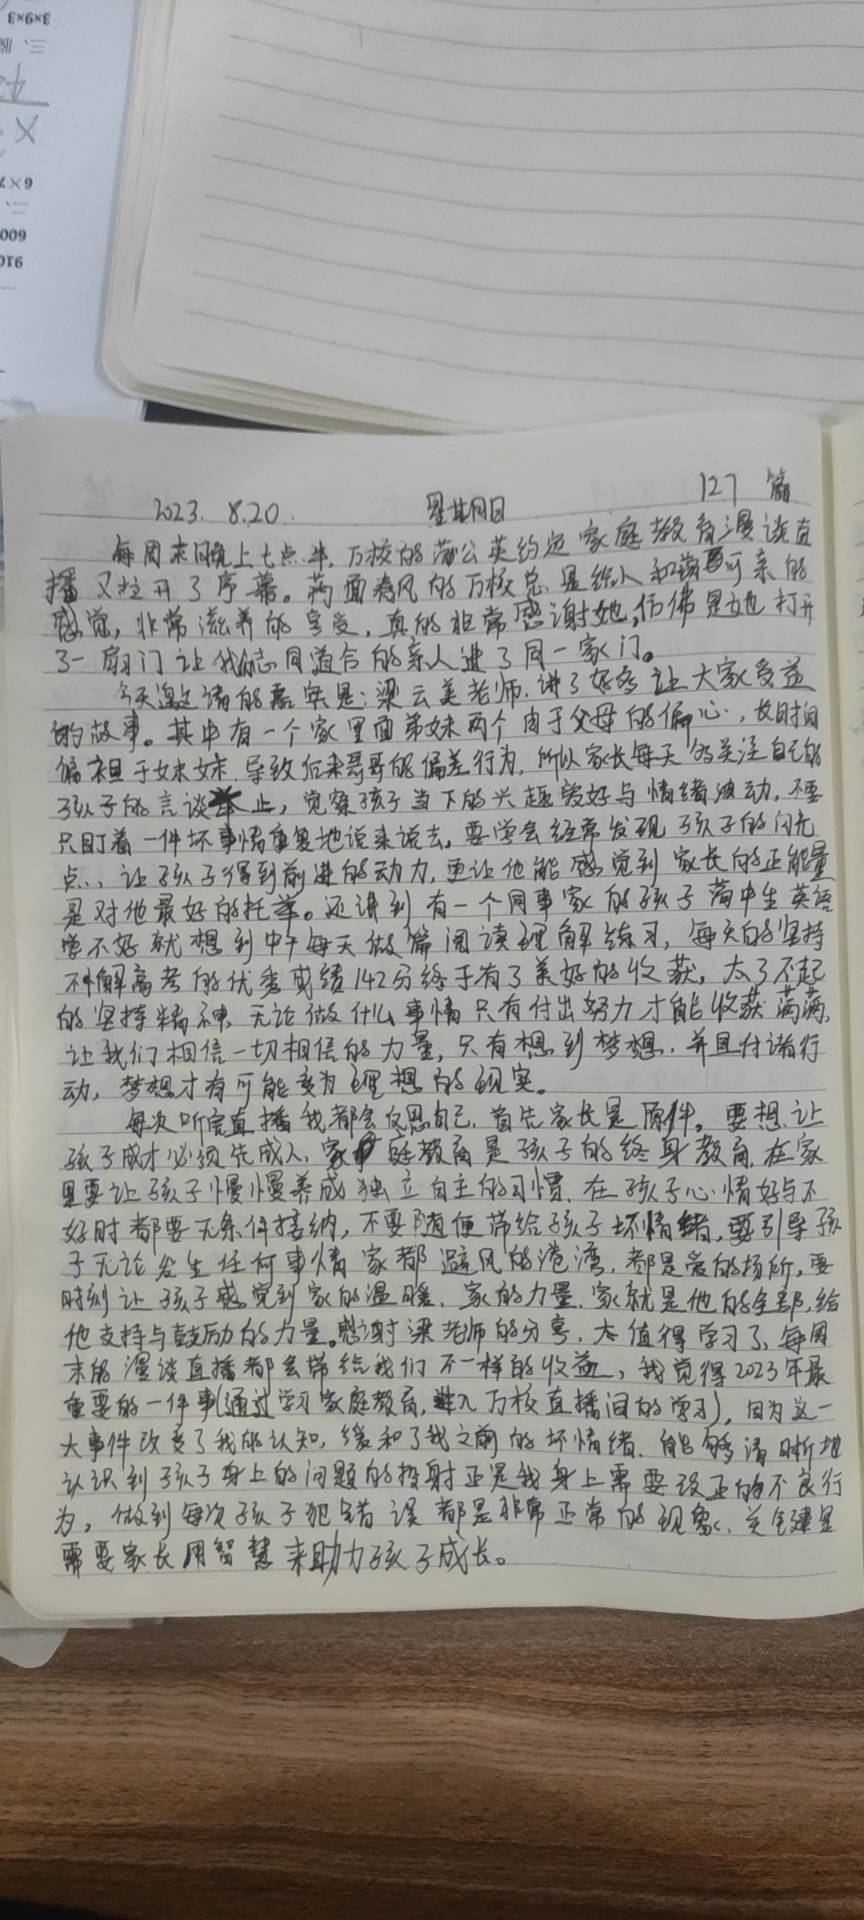 3×6×3
三、
6×7
二、
600
910
一
127 篇
2023. 8.20. 星期日
每周末晚上七点半,万校的蒲公英约定家庭教育漫谈直
播又拉开了序幕。满面春风的万校总是给人和蔼可亲的
感觉,非常滋养的享受,真的非常感谢她,仿佛是她打开
了一扇门让我们志同道合的亲人进了同一家门。
今天邀请的嘉宾是:梁云美老师.讲了好多让大家受益
的故事。其中有一个家里面弟妹两个由于父母的偏心,长时间
偏袒于妹妹.导致后来哥哥的偏差行为,所以家长每天多关注自己的
孩子的言谈举止,觉察孩子当下的兴趣爱好与情绪波动,不要
只盯着一件坏事情重复地说来说去。要学会经常发现孩子的闪光
点、让孩子得到前进的动力,更让他能感觉到家长的正能量
是对他最好的托举。还讲到有一个同事家的孩子高中生英语
学不好就想到中午每天做篇阅读理解练习,每天的坚持
不懈高考的优秀成绩142分终于有了美好的收获,太了不起
的坚持精神,无论做什么事情只有付出努力才能收获满满,
让我们相信一切相信的力量,只有想到梦想.并且付诸行
动,梦想才有可能变为理想的现实。
每次听完直播我都会反思自己.首先家长是原件。要想让
孩子成才必须先成人.家庭教育是孩子的终身教育.在家
里要让孩子慢慢养成独立自主的习惯.在孩子心情好与不
好时都要无条件接纳,不要随便带给孩子坏情绪,要引导孩
子无论发生任何事情家都避风的港湾,都是爱的场所,要
时刻让孩子感觉到家的温暖、家的力量.家就是他的全部,给
他支持与鼓励的力量。感谢梁老师的分享,太值得学习了,每周
末的漫谈直播都会带给我们不一样的收益,我觉得2023年最
重要的一件事(通过学习家庭教育,进入万校直播间的学习),因为这一
大事件改变了我的认知,缓和了我之前的坏情绪.能够清晰地
认识到孩子身上的问题的投射正是我身上需要改正的不良行
为,做到每次孩子犯错误都是非常正常的现象、关键是
需要家长用智慧来助力孩子成长。